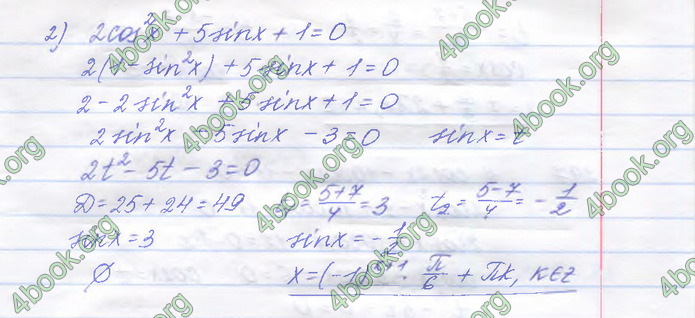 2) 2cos²x + 5sinx + 1 = 0
2(1 - sin²x) + 5sinx + 1 = 0
2 - 2sin²x + 5sinx + 1 = 0
2sin²x - 5sinx - 3 = 0 sinx = t
2t² - 5t - 3 = 0
D = 25 + 24 = 49 = (5+7)/4 = 3 t₂ = (5-7)/4 = -1/2
sinx = 3 sinx = -1/2
∅ x = (-1)ᵏ⁺¹ · π/6 + πk, k∈z
4book.org